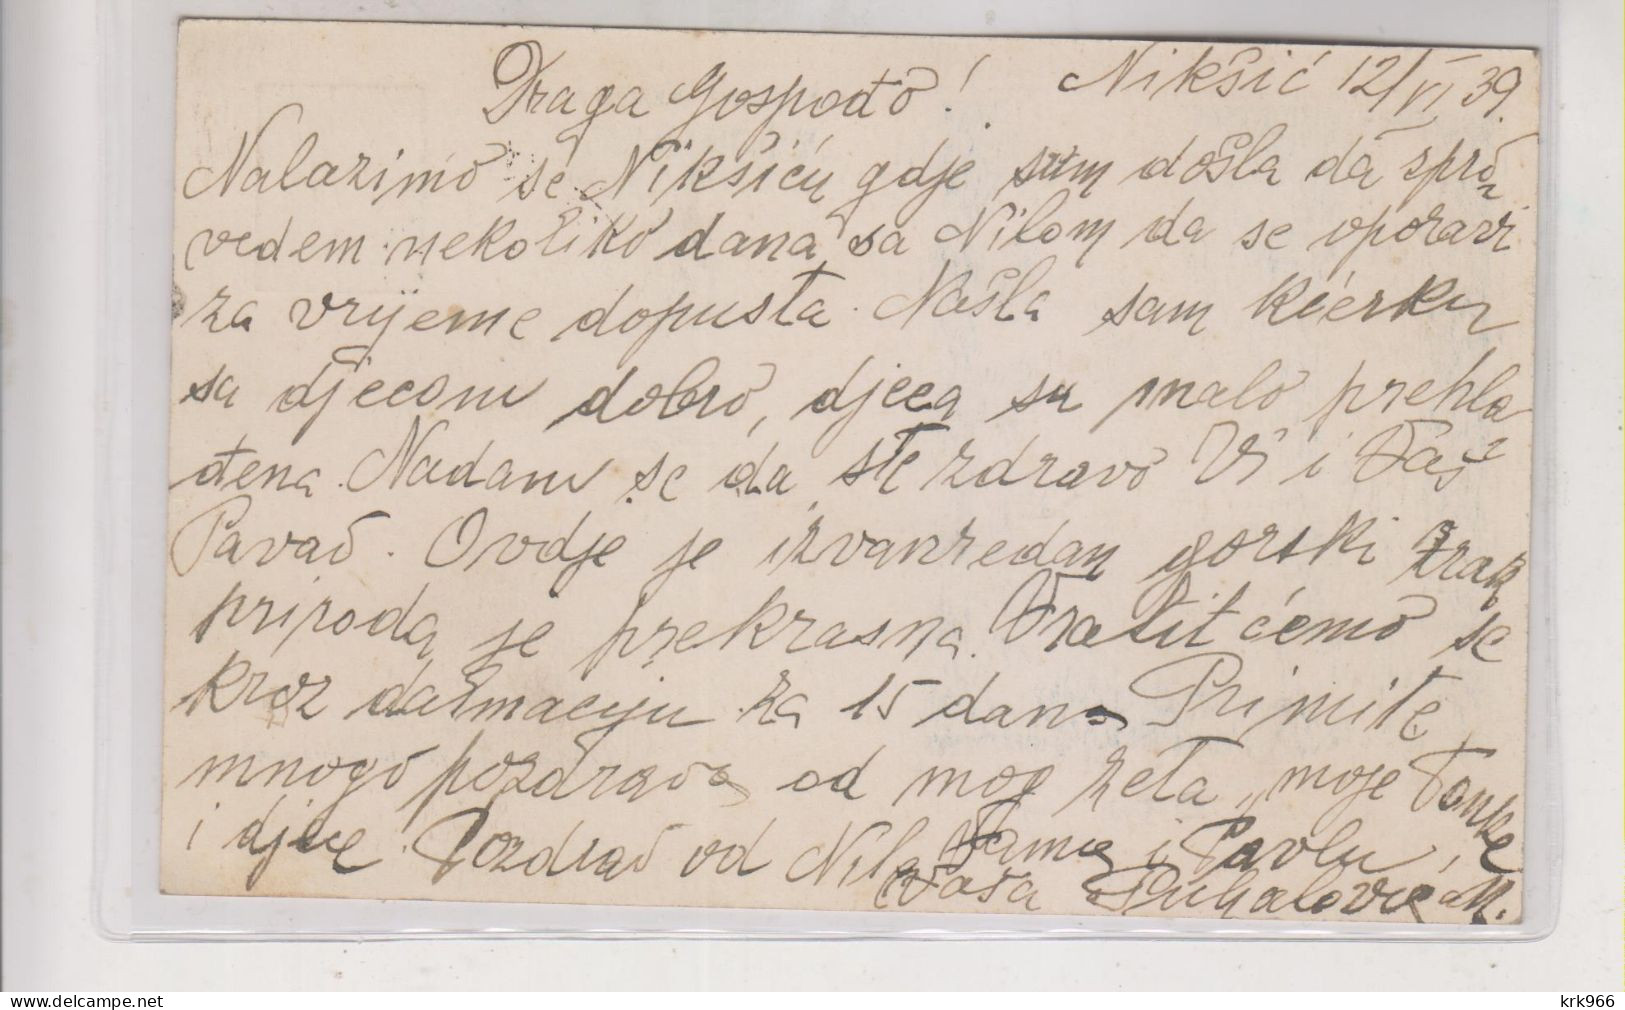 Nikšić 12/VI 39.
Draga Gospođo!
Nalazimo se Nikšiću gdje sam došla da spro-
vedem nekoliko dana sa Nilom da se oporavi
za vrijeme dopusta. Našla sam kćerku
sa djecom dobro, djeca su malo prehla
đena. Nadam se da ste zdravo Vi i Vaš
Pavao. Ovdje je izvanredan gorski zrak
priroda je prekrasna. Vratit ćemo se
kroz dalmaciju za 15 dana Primite
mnogo pozdrava od mog zeta, moje Tonke
i djece. Pozdrav od Nila Vama i Pavlu,
Vaša Puhalović M.
krk966